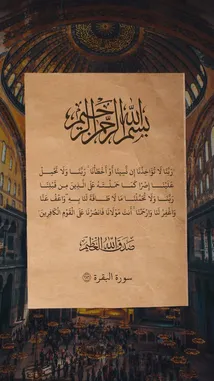 بسم الله الرحمن الرحيم
رَبَّنَا لَا تُؤَاخِذْنَا إِن نَّسِينَا أَوْ أَخْطَأْنَا ۚ رَبَّنَا وَلَا تَحْمِلْ
عَلَيْنَا إِصْرًا كَمَا حَمَلْتَهُ عَلَى الَّذِينَ مِن قَبْلِنَا ۚ
رَبَّنَا وَلَا تُحَمِّلْنَا مَا لَا طَاقَةَ لَنَا بِهِ ۖ وَاعْفُ عَنَّا
وَاغْفِرْ لَنَا وَارْحَمْنَا ۚ أَنتَ مَوْلَانَا فَانصُرْنَا عَلَى الْقَوْمِ الْكَافِرِينَ
صدق الله العظيم
سورة البقرة